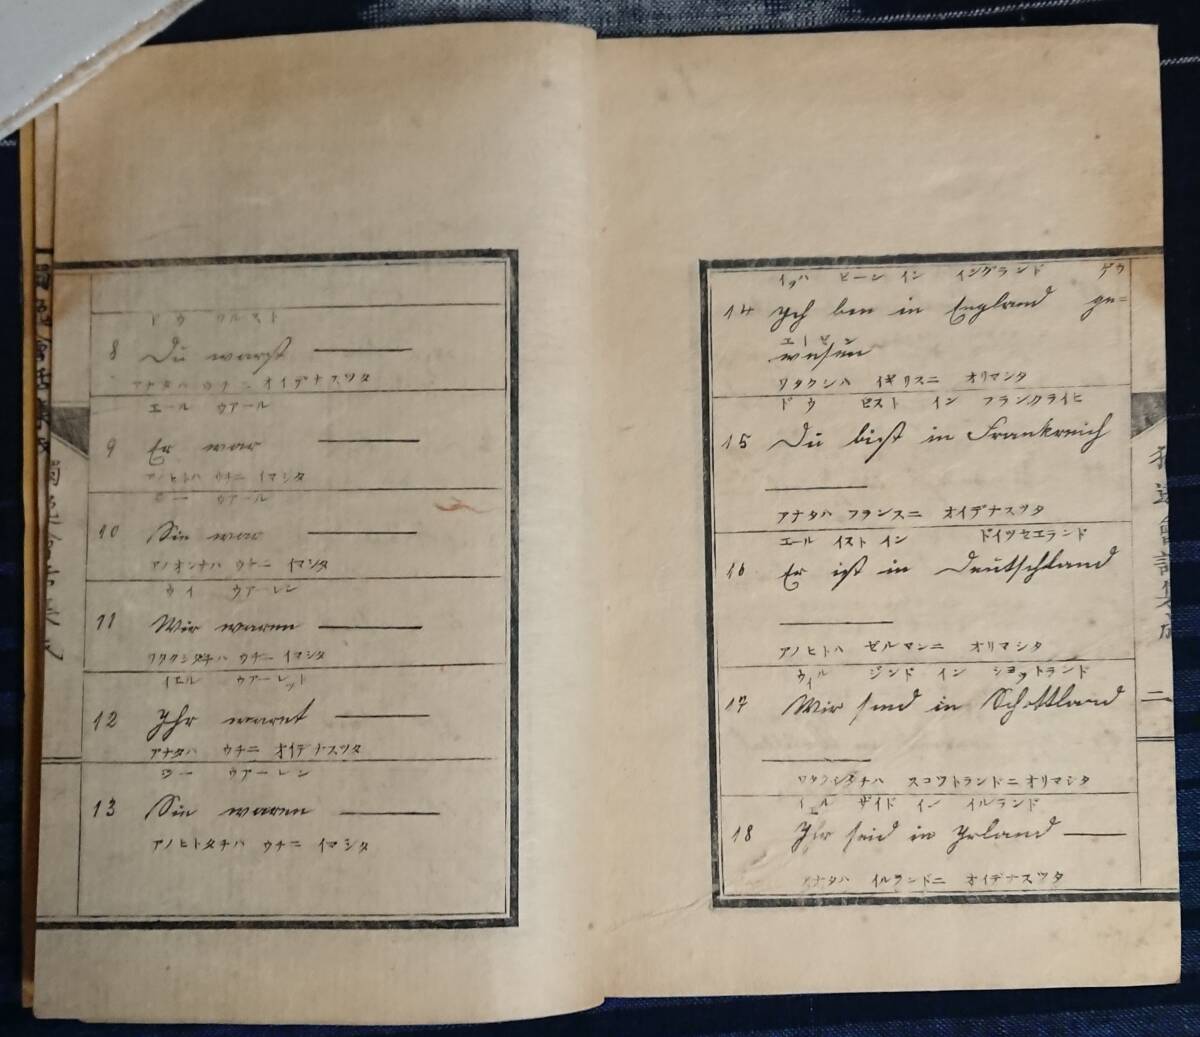 ドウ ワルスト
8 Du warst ———
アナタハ ウチニ オイデナスツタ
エール ウアール
9 Er war ———
アノヒトハ ウチニ イマシタ
ジー ウアール
10 Sie war ———
アノオンナハ ウチニ イマシタ
ウイ ウアーレン
11 Wir waren ———
ワタクシダチハ ウチニ イマシタ
イエル ウアーレット
12 Ihr waret ———
アナタハ ウチニ オイデナスツタ
ジー ウアーレン
13 Sie waren ———
アノヒトタチハ ウチニ イマシタ
イッハ ビーン イン イングランド ゲウ
14 Ich bin in England ge=
エーゼン
wesen
ワタクシハ イギリスニ オリマシタ
ドウ ビスト イン フランクライヒ
15 Du bist in Frankreich
———
アナタハ フランスニ オイデナスツタ
エール イスト イン ドイツセエランド
16 Er ist in Deutschland
———
アノヒトハ ゼルマンニ オリマシタ
ウィル ジンド イン ショットランド
17 Wir sind in Schottland
———
ワタクシタチハ スコツトランドニ オリマシタ
イエル ザイド イン イルランド
18 Ihr seid in Irland ———
アナタハ イルランドニ オイデナスツタ
二